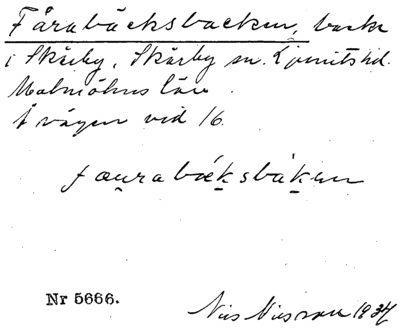 Fårabäcksbacken, backe
i Skårby, Skårby sn. Ljunits hd.
Malmöhus län.
Å vägen vid 16.
faurabæksbakɐn
Nr 5666.
Nils Nilsson 1934